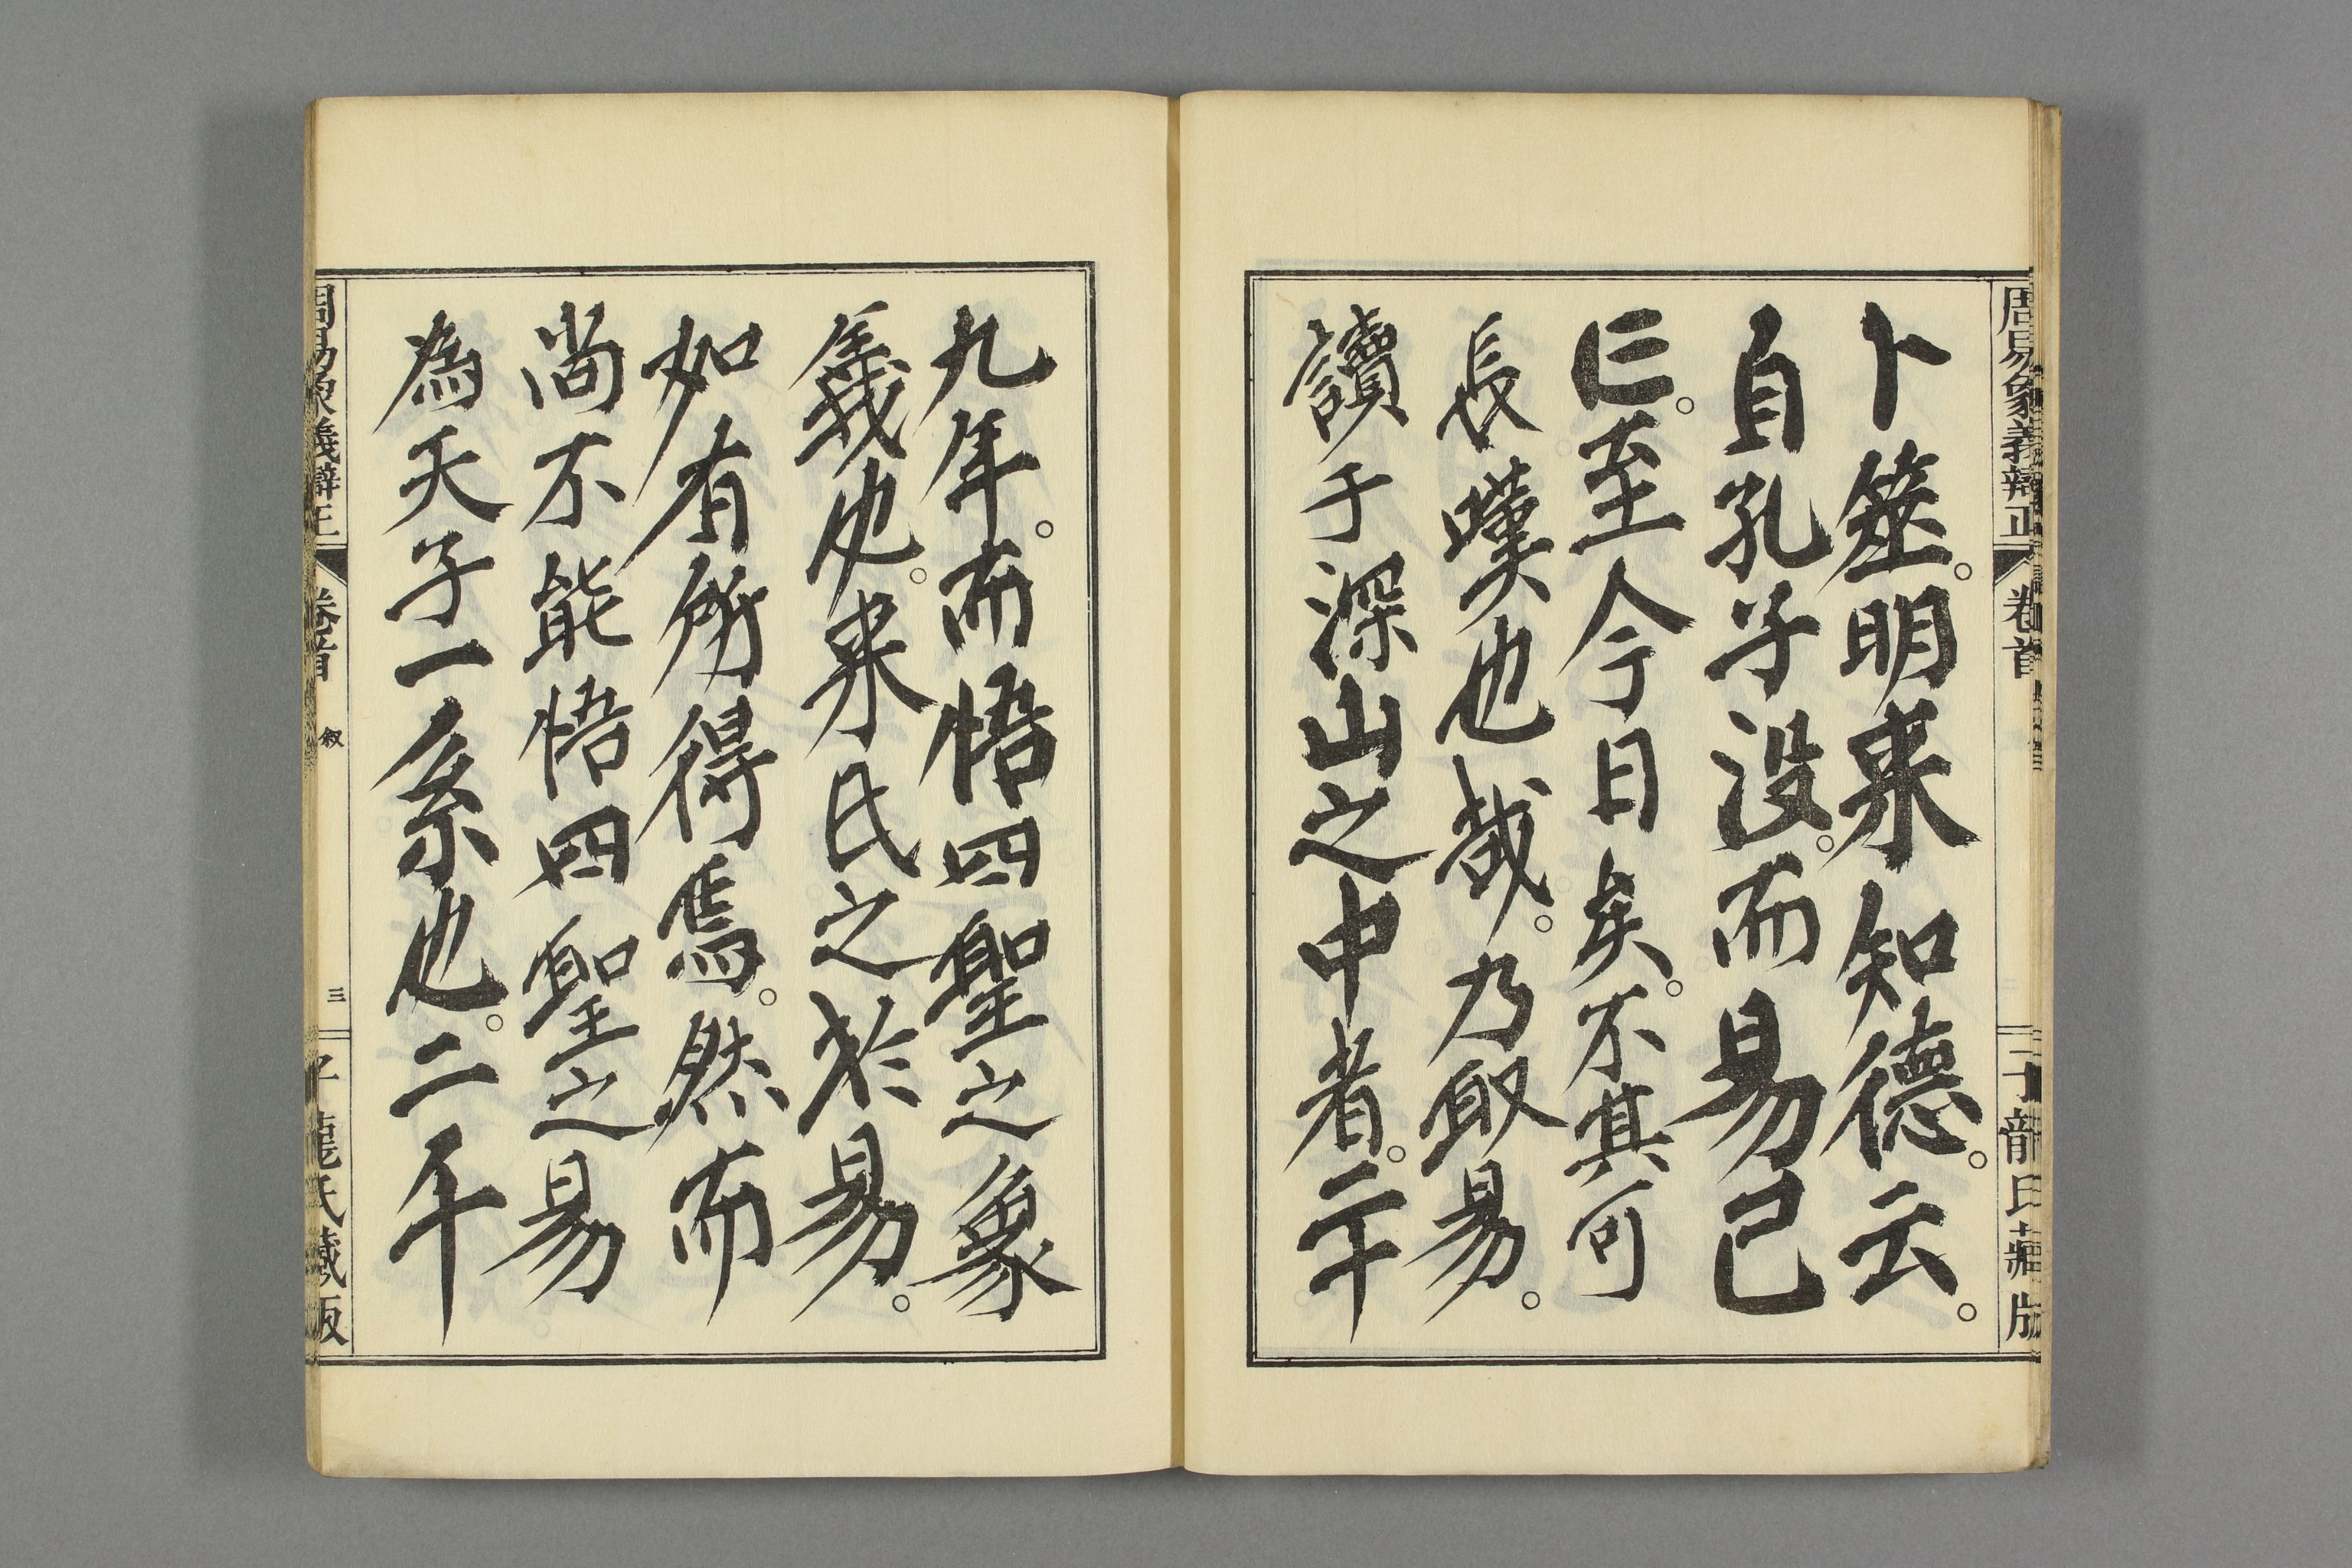 周易象義辯正 卷首 子龍氏藏版
卜筮。明來知德。云。
自孔子没。而易已
亡。至今日矣。不其可
長嘆也哉。乃取易。
讀于深山之中者。二十
九年。而悟四聖之象
義也。來氏之於易。
如有所得焉。然而
尚不能悟四聖之易
為天子一系也。二千
周易象義辯正 卷首 叙 三 子龍氏藏版